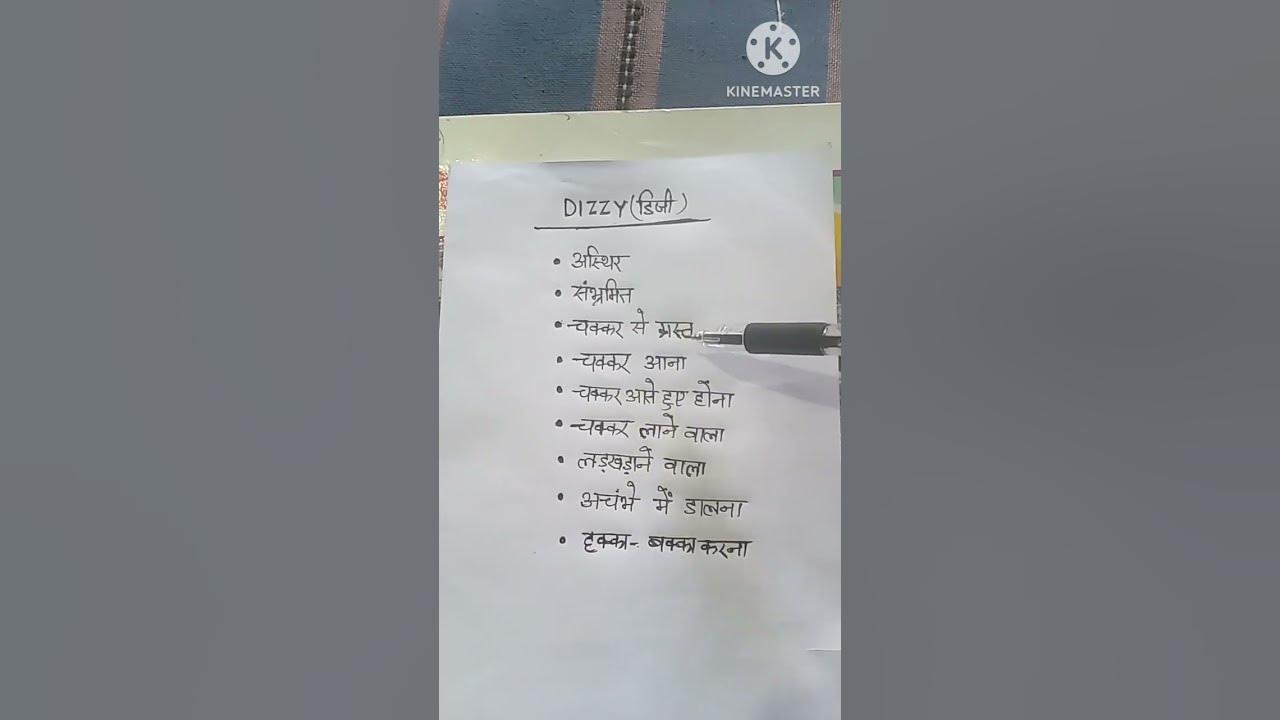 KINEMASTER
DIZZY(डिजी)
• अस्थिर
• संभ्रमित
• चक्कर से ग्रस्त
• चक्कर आना
• चक्कर आते हुए होना
• चक्कर लाने वाला
• लड़खड़ाने वाला
• अचंभे में डालना
• हक्का-बक्का करना